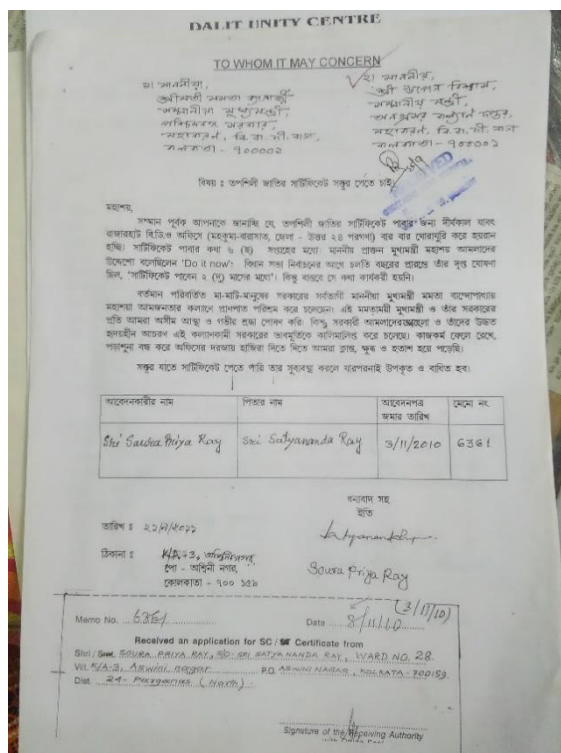 DALIT UNITY CENTRE
TO WHOM IT MAY CONCERN
১। মাননীয়া,
শ্রীমতী মমতা ব্যানার্জী
মাননীয়া মুখ্যমন্ত্রী,
পশ্চিমবঙ্গ সরকার,
মহাকরণ, বি.বা.দী. বাগ,
কলকাতা - ৭০০০০১
২। মাননীয়,
শ্রী উপেন বিশ্বাস,
মাননীয় মন্ত্রী,
অনগ্রসর কল্যাণ দপ্তর,
মহাকরণ, বি.বা.দী. বাগ
কলকাতা - ৭০০০০১
বিষয় : তপশিলী জাতির সার্টিফিকেট সত্ত্বর পেতে চাই
মহাশয়,
সম্মান পূর্বক আপনাকে জানাচ্ছি যে, তপশিলী জাতির সার্টিফিকেট পাবার জন্য দীর্ঘকাল যাবৎ
রাজারহাট বি.ডি.ও অফিসে (মহকুমা-বারাসাত, জেলা - উত্তর ২৪ পরগণা) বার বার ঘোরাঘুরি করে হয়রান
হচ্ছি। সার্টিফিকেট পাবার কথা ৬ (ছ) সপ্তাহের মধ্যে। মাননীয় প্রাক্তন মুখ্যমন্ত্রী মহাশয় আমলাদের
উদ্দেশ্যে বলেছিলেন 'Do it now'। বিধান সভা নির্বাচনের আগে চলতি বছরের প্রারম্ভে তাঁর দৃপ্ত ঘোষণা
ছিল, 'সার্টিফিকেট পাবেন ২ (দু) মাসের মধ্যে'। কিন্তু বাস্তবে সে কথা কার্যকরী হয়নি।
বর্তমান পরিবর্তিত মা-মাটি-মানুষের সরকারের সর্বত্যাগী মাননীয়া মুখ্যমন্ত্রী মমতা বন্দোপাধ্যায়
মহাশয়া আমজনতার কল্যাণে প্রাণপাত পরিশ্রম করে চলেছেন। এই মমতাময়ী মুখ্যমন্ত্রী ও তাঁর সরকারের
প্রতি আমরা অসীম আস্থা ও গভীর শ্রদ্ধা পোষণ করি। কিন্তু সরকারী আমলাদের ও তাঁদের উদ্ধত
হৃদয়হীন আচরণ এই কল্যাণকামী সরকারের ভাবমূর্তিকে কালিমালিপ্ত করে চলেছে। কাজকর্ম ফেলে রেখে,
পড়াশুনা বন্ধ করে অফিসের দরজায় হাজিরা দিতে দিতে আমরা ক্লান্ত, ক্ষুব্ধ ও হতাশ হয়ে পড়েছি।
সত্ত্বর যাতে সার্টিফিকেট পেতে পারি তার সুব্যবস্থা করলে যারপরনাই উপকৃত ও বাধিত হব।
আবেদনকারীর নাম
পিতার নাম
আবেদনপত্র
জমার তারিখ
মেমো নং
Shri Soura Priya Ray
Sri Satyananda Ray
3/11/2010
6361
ধন্যবাদ সহ
ইতি
তারিখ :
ঠিকানা : K/A-3, অশ্বিনীনগর,
পো - অশ্বিনী নগর,
কোলকাতা - ৭০০ ১৫৯
Soura Priya Ray
(3/11/10)
Memo No. 6361 Date 8/11/10
Received an application for SC / ST Certificate from
Shri / Smt. SOURA PRIYA RAY, S/O- SRI SATYA NANDA RAY, WARD NO. 28.
Vill. K/A-3, Aswini nagar P.O. ASWINI NAGAR, KOLKATA-700159.
Dist. 24- Parganas (North)
Signature of the Receiving Authority